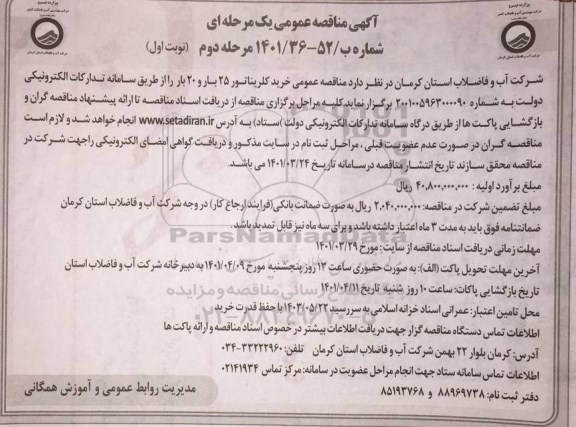 آگهی مناقصه عمومی یک مرحله ای
شماره ب/۵۲-۱۴۰۱/۳۶ مرحله دوم (نوبت اول)
شرکت آب و فاضلاب استان کرمان در نظر دارد مناقصه عمومی خرید کلریناتور ۲۵ بار و ۲۰ بار را از طریق سامانه تدارکات الکترونیکی
دولت به شماره ۲۰۰۱۰۰۵۹۶۳۰۰۰۰۹۰ برگزار نماید کلیه مراحل برگزاری مناقصه از دریافت اسناد مناقصه تا ارائه پیشنهاد مناقصه گران و
بازگشایی پاکت ها از طریق درگاه سامانه تدارکات الکترونیکی دولت (ستاد) به آدرس www.setadiran.ir انجام خواهد شد و لازم است
مناقصه گران در صورت عدم عضویت قبلی ، مراحل ثبت نام در سایت مذکور و دریافت گواهی امضای الکترونیکی راجهت شرکت در
مناقصه محقق سازند تاریخ انتشار مناقصه در سامانه تاریخ ۱۴۰۱/۰۳/۲۴ می باشد.
مبلغ برآورد اولیه : ۴۰,۸۰۰,۰۰۰,۰۰۰ ریال
مبلغ تضمین شرکت در مناقصه: ۲,۰۴۰,۰۰۰,۰۰۰ ریال به صورت ضمانت بانکی(فرایند ارجاع کار) در وجه شرکت آب و فاضلاب استان کرمان
ضمانتنامه فوق باید به مدت ۳ ماه اعتبار داشته باشد و برای سه ماه نیز قابل تمدید باشد.
مهلت زمانی دریافت اسناد مناقصه از سایت: مورخ ۱۴۰۱/۰۳/۲۹
آخرین مهلت تحویل پاکت (الف): به صورت حضوری ساعت ۱۳ روز پنجشنبه مورخ ۱۴۰۱/۰۴/۰۹ به دبیرخانه شرکت آب و فاضلاب استان
تاریخ بازگشایی پاکات: ساعت ۱۰ روز شنبه تاریخ ۱۴۰۱/۰۴/۱۱
محل تامین اعتبار: عمرانی اسناد خزانه اسلامی به سررسید ۱۴۰۳/۰۵/۲۲ با حفظ قدرت خرید
اطلاعات تماس دستگاه مناقصه گزار جهت دریافت اطلاعات بیشتر در خصوص اسناد مناقصه و ارائه پاکت ها
آدرس: کرمان بلوار ۲۲ بهمن شرکت آب و فاضلاب استان کرمان تلفن: ۳۳۲۲۲۹۶۰-۰۳۴
اطلاعات تماس سامانه ستاد جهت انجام مراحل عضویت در سامانه: مرکز تماس ۰۲۱۴۱۹۳۴
دفتر ثبت نام: ۸۸۹۶۹۷۳۸ و ۸۵۱۹۳۷۶۸
مدیریت روابط عمومی و آموزش همگانی
ParsNamadData